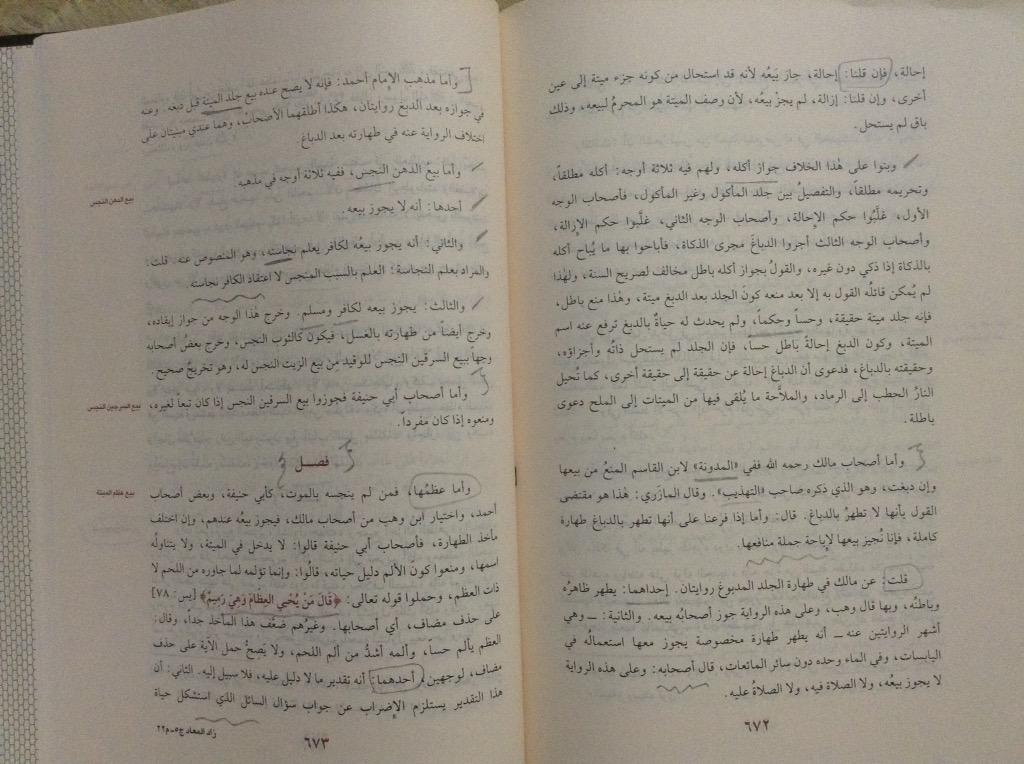 إحالة، فإن قلنا: إحالة، جاز بَيعُه لأنه قد استحال من كونه جزء ميتة إلى عين
أخرى، وإن قلنا: إزالة، لم يجزْ بيعُه، لأن وصف الميتة هو المحرمُ لبيعه، وذلك
باق لم يستحل.
وبنوا على هٰذا الخلاف جواز أكله، ولهم فيه ثلاثة أوجه: أكله مطلقاً،
وتحريمه مطلقاً، والتفصيلُ بين جلد المأكول وغير المأكول، فأصحاب الوجه
الأول، غلَّبُوا حكم الإحالة، وأصحاب الوجه الثاني، غلَّبوا حكم الإزالة،
وأصحاب الوجه الثالث أجروا الدباغَ مجرى الذكاة، فأباحوا بها ما يُباح أكله
بالذكاة إذا ذكي دون غيره، والقولُ بجواز أكله باطل مخالف لصريح السنة، ولهٰذا
لم يُمكن قائلُه القول به إلا بعد منعه كونَ الجلد بعد الدبغ ميتة، وهٰذا منع باطل،
فإنه جلد ميتة حقيقة، وحساً وحكماً، ولم يحدث له حياةٌ بالدبغ ترفع عنه اسم
الميتة، وكون الدبغ إحالةً باطل حساً، فإن الجلد لم يستحل ذاتُه وأجزاؤه،
وحقيقته بالدباغ، فدعوى أن الدباغ إحالة عن حقيقة إلى حقيقة أخرى، كما تُحيل
النارُ الحطب إلى الرماد، والملاَّحة ما يُلقى فيها من الميتات إلى الملح دعوى
باطلة.
وأما أصحاب مالك رحمه الله ففي «المدونة» لابن القاسم المنعُ من بيعها
وإن دبغت، وهو الذي ذكره صاحب «التهذيب». وقال المازَري: هٰذا هو مقتضى
القول بأنها لا تطهرُ بالدباغ. قال: وأما إذا فرعنا على أنها تطهر بالدباغ طهارة
كاملة، فإنا نُجيز بيعها لإِباحة جملة منافعها.
قلت: عن مالك في طهارة الجلد المدبوغ روايتان. إحداهما: يطهر ظاهرُه
وباطنُه، وبها قال وهب، وعلى هٰذه الرواية جوز أصحابُه بيعه. والثانية: ـ وهي
أشهر الروايتين عنه ـ أنه يطهر طهارة مخصوصة يجوز معها استعمالُه في
اليابسات، وفي الماء وحده دون سائر المائعات، قال أصحابه: وعلى هٰذه الرواية
لا يجوز بيعُه، ولا الصلاة فيه، ولا الصلاةُ عليه.
٦٧٢
وأما مذهب الإمام أحمد: فإنه لا يصح عنده بيع جلد الميتة قبل دبغه. وعنه
في جوازه بعد الدبغ روايتان، هكذا أطلقهما الأصحابُ، وهما عندي مبنيتان على
اختلاف الرواية عنه في طهارته بعد الدباغ
بيع الدهن النجس
وأما بيعُ الدهن النجس، ففيه ثلاثة أوجه في مذهبه.
أحدها: أنه لا يجوز بيعه.
والثاني: أنه يجوز بيعُه لكافر يعلم نجاسته، وهو المنصوص عنه. قلت:
والمراد بعلم النجاسة: العلم بالسبب المنجس لا اعتقاد الكافر نجاسته
والثالث: يجوز بيعه لكافر ومسلم. وخرج هٰذا الوجه من جواز إيقاده،
وخرج أيضاً من طهارته بالغسل، فيكون كالثوب النجس، وخرج بعضُ أصحابه
وجهاً ببيع السرقين النجس للوقيد من بيع الزيت النجس له، وهو تخريجٌ صحيح.
بيع السرجين النجس
وأما أصحاب أبي حنيفة فجوزوا بيع السرقين النجس إذا كان تبعاً لغيره،
ومنعوه إذا كان مفرداً.
فصــل
بيع عظم الميتة
وأما عظمُها، فمن لم ينجسه بالموت، كأبي حنيفة، وبعض أصحاب
أحمد، واختيار ابن وهب من أصحاب مالك، فيجوز بيعُه عندهم، وإن اختلف
مأخذ الطهارة، فأصحاب أبي حنيفة قالوا: لا يدخل في الميتة، ولا يتناولُه
اسمها، ومنعوا كونَ الألم دليلَ حياته، قالُوا: وإنما تؤلمه لما جاوره من اللحم لا
ذات العظم، وحملوا قوله تعالى: ﴿قَالَ مَنْ يُحْيِي العِظَامَ وَهِيَ رَمِيمٌ﴾ [يس: ٧٨]
على حذف مضاف، أي أصحابها. وغيرُهم ضعَّف هٰذا المأخذ جداً، وقال:
العظم يألم حساً، وألمه أشدُّ من ألم اللحم، ولا يَصحُّ حمل الآية على حذف
مضاف، لوجهين، أحدهما: أنه تقدير ما لا دليل عليه، فلا سبيل إليه. الثاني: أن
هٰذا التقدير يستلزم الإِضراب عن جواب سؤال السائل الذي استشكل حياة
زاد المعاد ج٥-م٢٢
٦٧٣